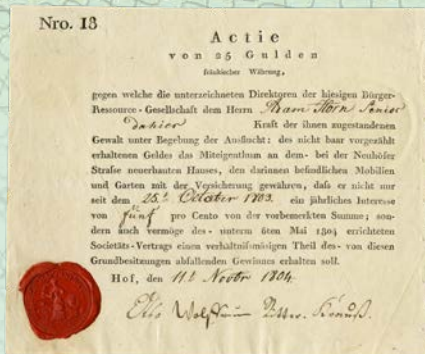 Nro. 13
Actie
von 25 Gulden
fränkischer Währung,
gegen welche die unterzeichneten Direktoren der hiesigen Bürger-
Ressource-Gesellschaft dem Herrn Adam Horn Senior
dahier Kraft der ihnen zugestandenen
Gewalt unter Begebung der Ausflucht: des nicht baar vorgezählt
erhaltenen Geldes das Miteigenthum an dem- bei der Neuhöfer
Strasse neuerbauten Hauses, den darinnen befindlichen Mobilien
und Garten mit der Versicherung gewähren, daß er nicht nur
seit dem 25t October 1803. ein jährliches Interesse
von fünf pro Cento von der vorbemerkten Summe; son-
dern auch vermöge des- unterm 6ten Mai 1804 errichteten
Societäts-Vertrags einen verhältnismäsigen Theil des- von diesen
Grundbesitzungen abfallenden Gewinnes erhalten soll.
Hof, den 11t Novbr 1804.